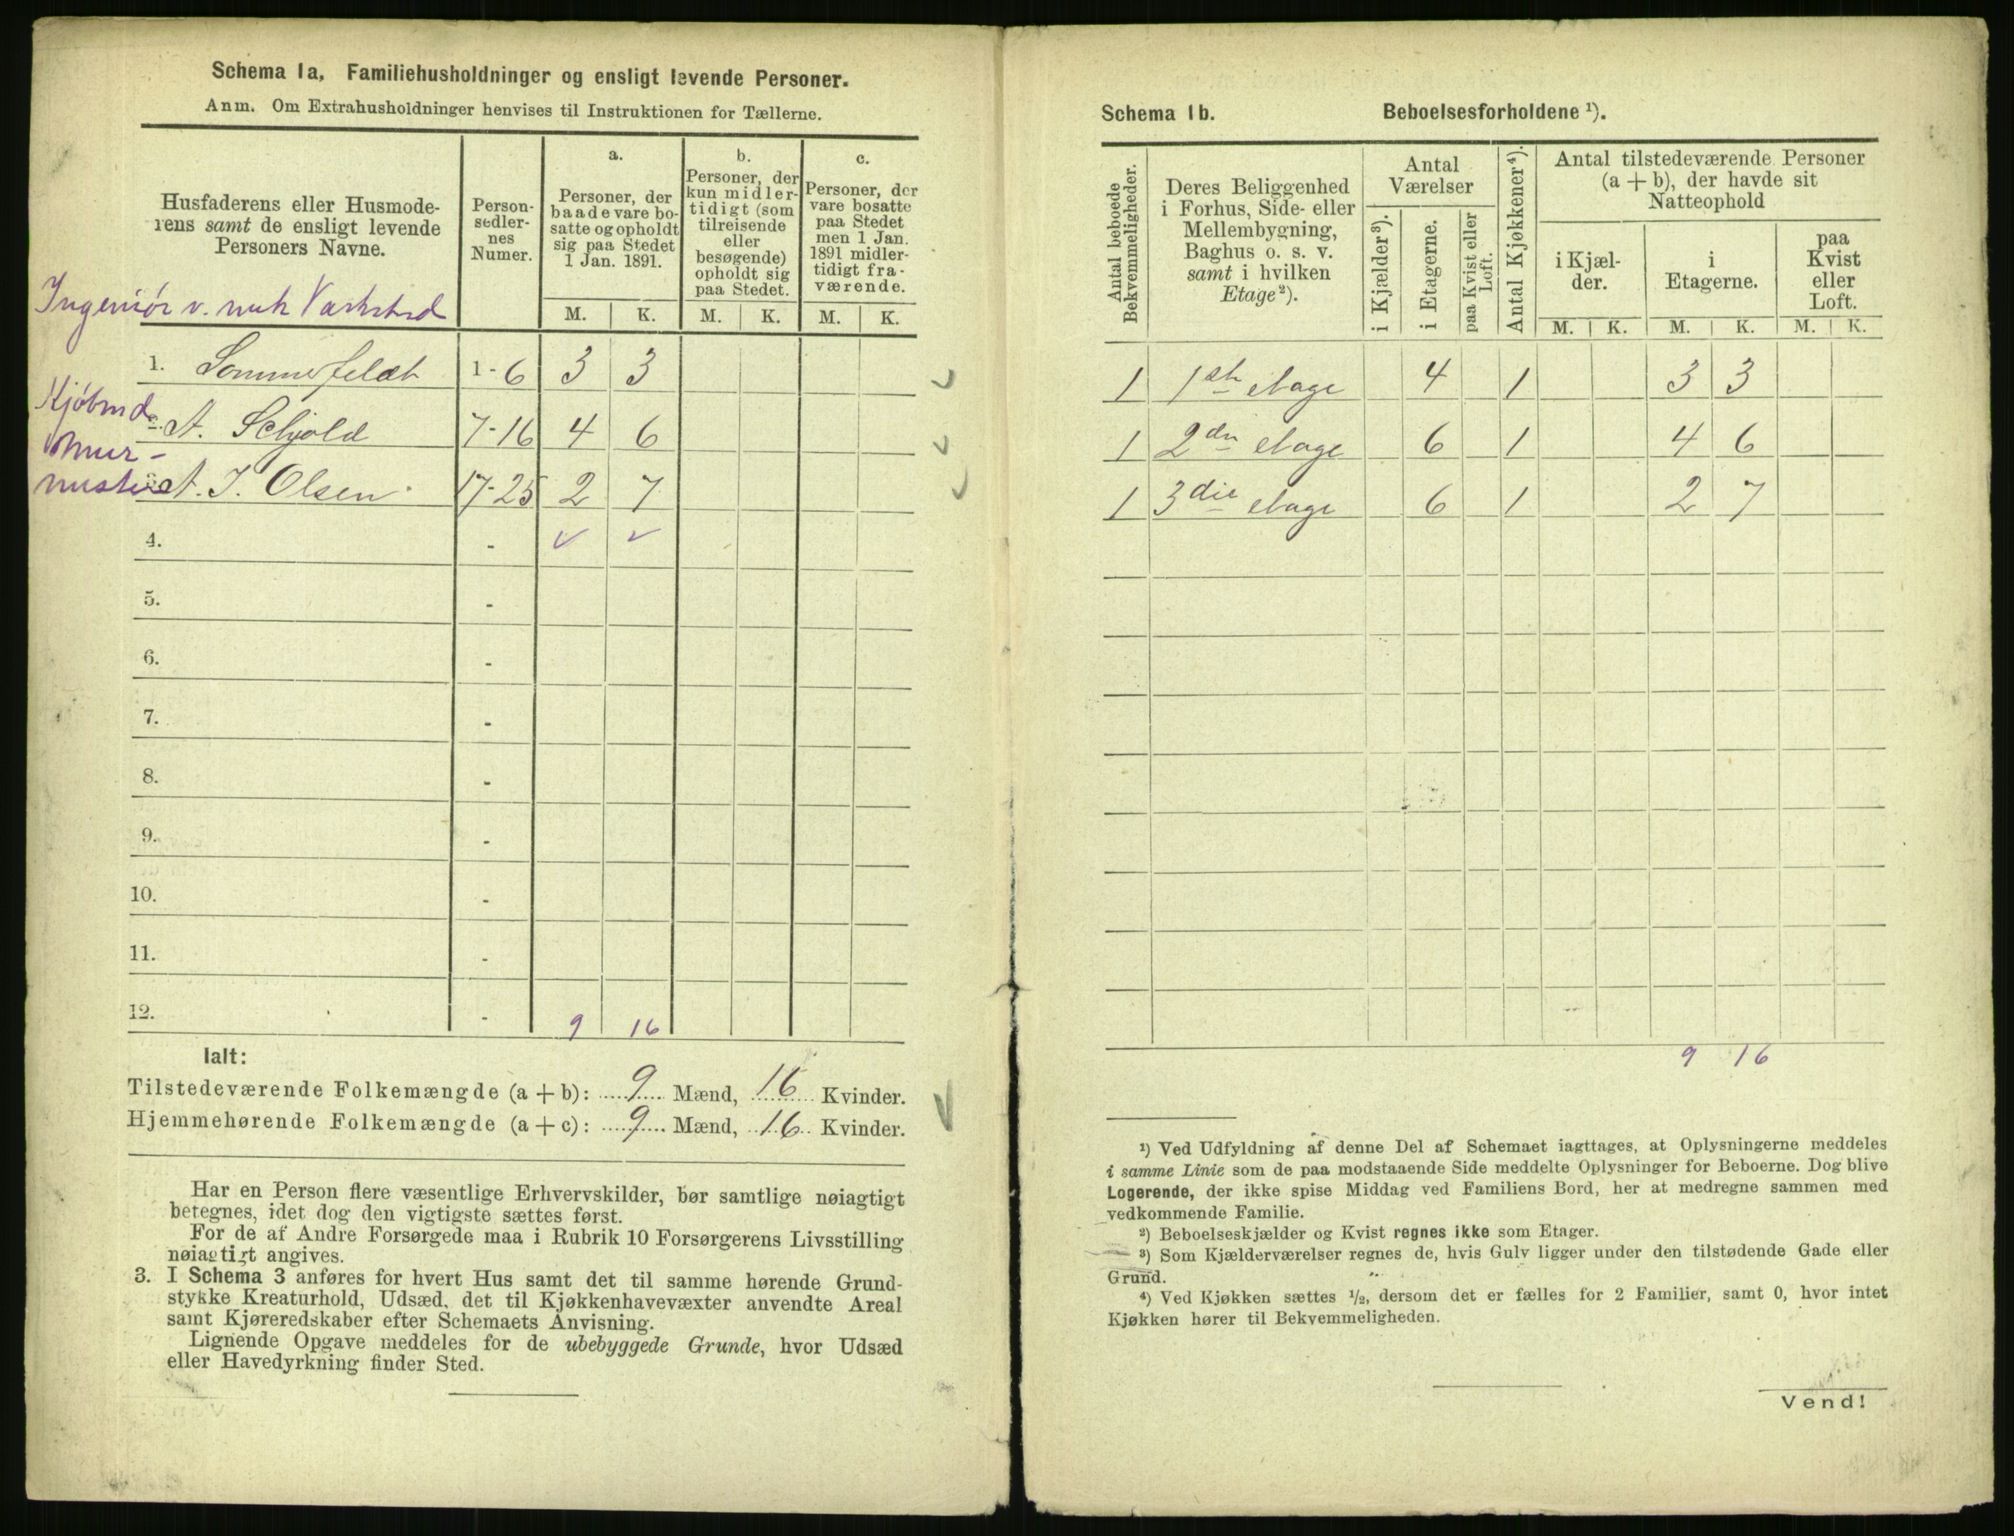 Schema 1a, Familiehusholdninger og ensligt levende Personer.
Anm. Om Extrahusholdninger henvises til Instruktionen for Tællerne.
Husfaderens eller Husmode-
rens samt de ensligt levende
Personers Navne.
Person-
sedler-
nes
Numer.
a.
Personer, der
baade vare bo-
satte og opholdt
sig paa Stedet
1 Jan. 1891.
b.
Personer, der
kun midler-
tidigt (som
tilreisende
eller
besøgende)
opholdt sig
paa Stedet.
c.
Personer, der
vare bosatte
paa Stedet
men 1 Jan.
1891 midler-
tidigt fra-
værende.
M. K. M. K. M. K.
Ingeniør v. mek Værksted
1. Sommerfeldt 1-6 3 3
Kjøbmd
2. A. Schjold 7-16 4 6
Mur-
mester A. J. Olsen 17-25 2 7
4. -
5. -
6. -
7. -
8. -
9. -
10. -
11. -
12. - 9 16
Ialt:
Tilstedeværende Folkemængde (a + b): 9 Mænd, 16 Kvinder.
Hjemmehørende Folkemængde (a + c): 9 Mænd, 16 Kvinder.
Har en Person flere væsentlige Erhvervskilder, bør samtlige nøiagtigt
betegnes, idet dog den vigtigste sættes først.
For de af Andre Forsørgede maa i Rubrik 10 Forsørgerens Livsstilling
nøiagtigt angives.
3. I Schema 3 anføres for hvert Hus samt det til samme hørende Grund-
stykke Kreaturhold, Udsæd, det til Kjøkkenhavevæxter anvendte Areal
samt Kjøreredskaber efter Schemaets Anvisning.
Lignende Opgave meddeles for de ubebyggede Grunde, hvor Udsæd
eller Havedyrkning finder Sted.
Schema 1b. Beboelsesforholdene ¹).
Antal beboede
Bekvemmeligheder.
Deres Beliggenhed
i Forhus, Side- eller
Mellembygning,
Baghus o. s. v.
samt i hvilken
Etage²).
Antal
Værelser
i Kjælder³).
i Etagerne.
paa Kvist eller
Loft.
Antal Kjøkkener⁴).
Antal tilstedeværende Personer
(a + b), der havde sit
Natteophold
i Kjæl-
der.
i
Etagerne.
paa
Kvist
eller
Loft.
M. K. M. K. M. K.
1 1ste etage 4 1 3 3
1 2den etage 6 1 4 6
1 3die etage 6 1 2 7
9 16
¹) Ved Udfyldning af denne Del af Schemaet iagttages, at Oplysningerne meddeles
i samme Linie som de paa modstaaende Side meddelte Oplysninger for Beboerne. Dog blive
Logerende, der ikke spise Middag ved Familiens Bord, her at medregne sammen med
vedkommende Familie.
²) Beboelseskjælder og Kvist regnes ikke som Etager.
³) Som Kjælderværelser regnes de, hvis Gulv ligger under den tilstødende Gade eller
Grund.
⁴) Ved Kjøkken sættes ½, dersom det er fælles for 2 Familier, samt 0, hvor intet
Kjøkken hører til Bekvemmeligheden.
Vend!